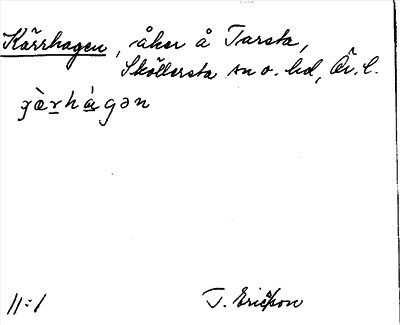 Kärrhagen, åker å Tarsta,
Sköllersta sn o. hd, Ör. l.
gæ̀rhágən
11:1
T. Ericsson